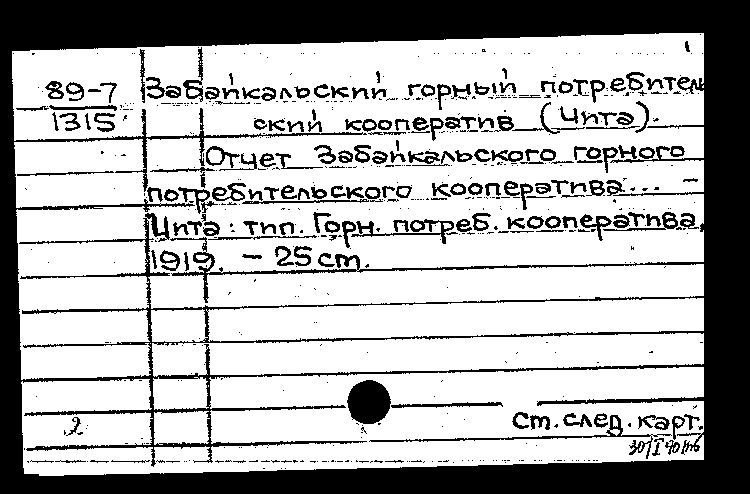 89-7 Забайкальский горный потребитель
1315 ский кооператив (Чита).
Отчет Забайкальского горного
потребительского кооператива... –
Чита: тип. Горн. потреб. кооператива,
1919. – 25 ст.
2 ст. след. карт.